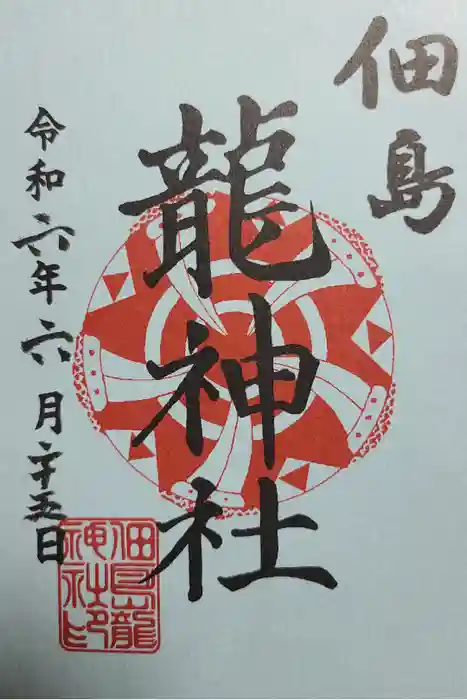 佃島
龍神社
令和六年六月二十五日
佃島龍
神社鈐印